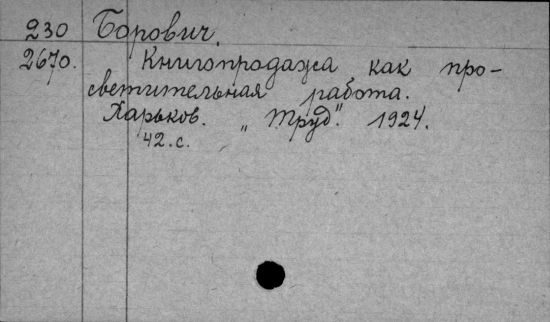 230 Борович.
2670. Книгопродажа как про-
светительная работа.
Харьков. „Труд". 1924.
42. с.